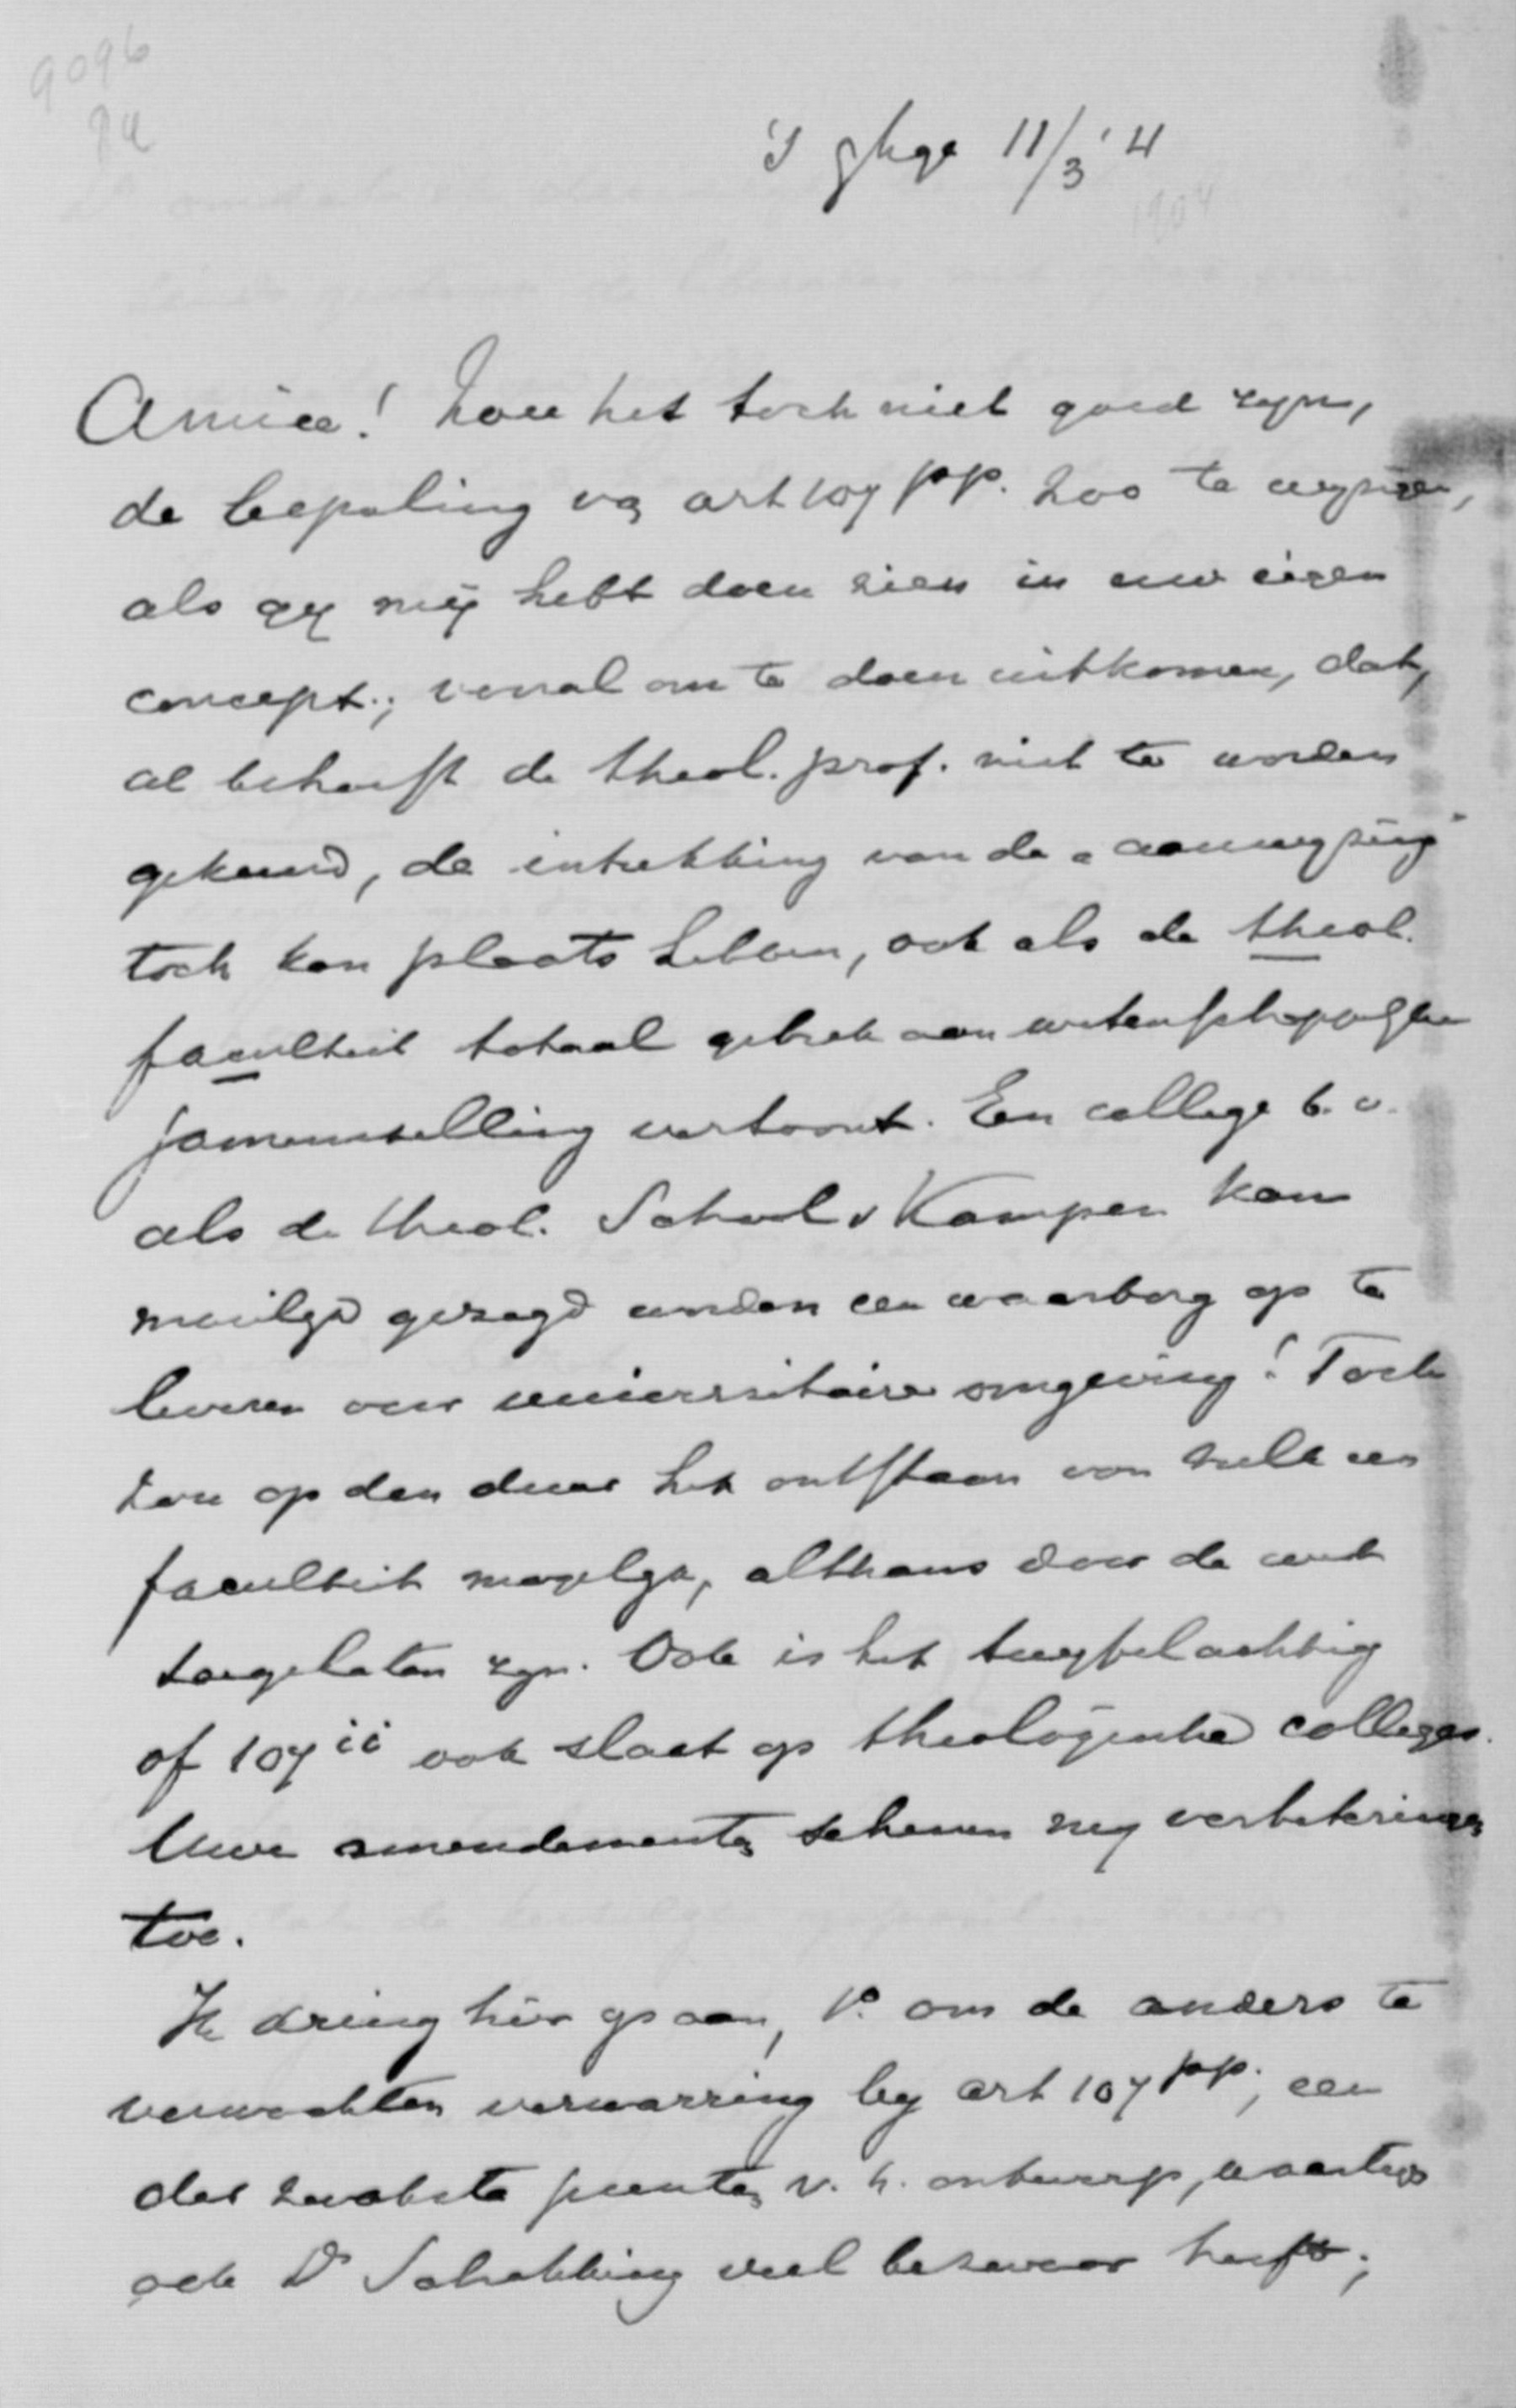 9096
's Ghge 11/3 '4
1904
Amice! Zou het toch niet goed zijn,
de bepaling v. art 107 pp. zoo te wijzigen,
als gij mij hebt doen zien in uw eigen
concept; vooral om te doen uitkomen, dat,
al behoeft de theol. prof. niet te worden
gekeurd, de intrekking van de "aanwijzing"
toch kan plaats hebben, ook als de theol.
faculteit totaal gebrek aan wetenschappelijke
samenstelling vertoont. Een college b.v.
als de theol. School v Kampen kan
moeilijk gezegd worden een waarborg op te
leveren voor universitaire omgeving! Toch
zou op den duur het ontstaan van zulk een
faculteit mogelijk, althans door de wet
toegelaten zijn. Ook is het twijfelachtig
of 107 ii ook slaat op theologische colleges.
Uwe amendementen schenen mij verbeteringen
toe.
Ik dring hier op aan, 1º. om de anders te
verwachten verwarring bij art 107 pp., een
der zwakste punten v. h. ontwerp, waartegen
ook Dr Schokking veel bezwaar heeft;